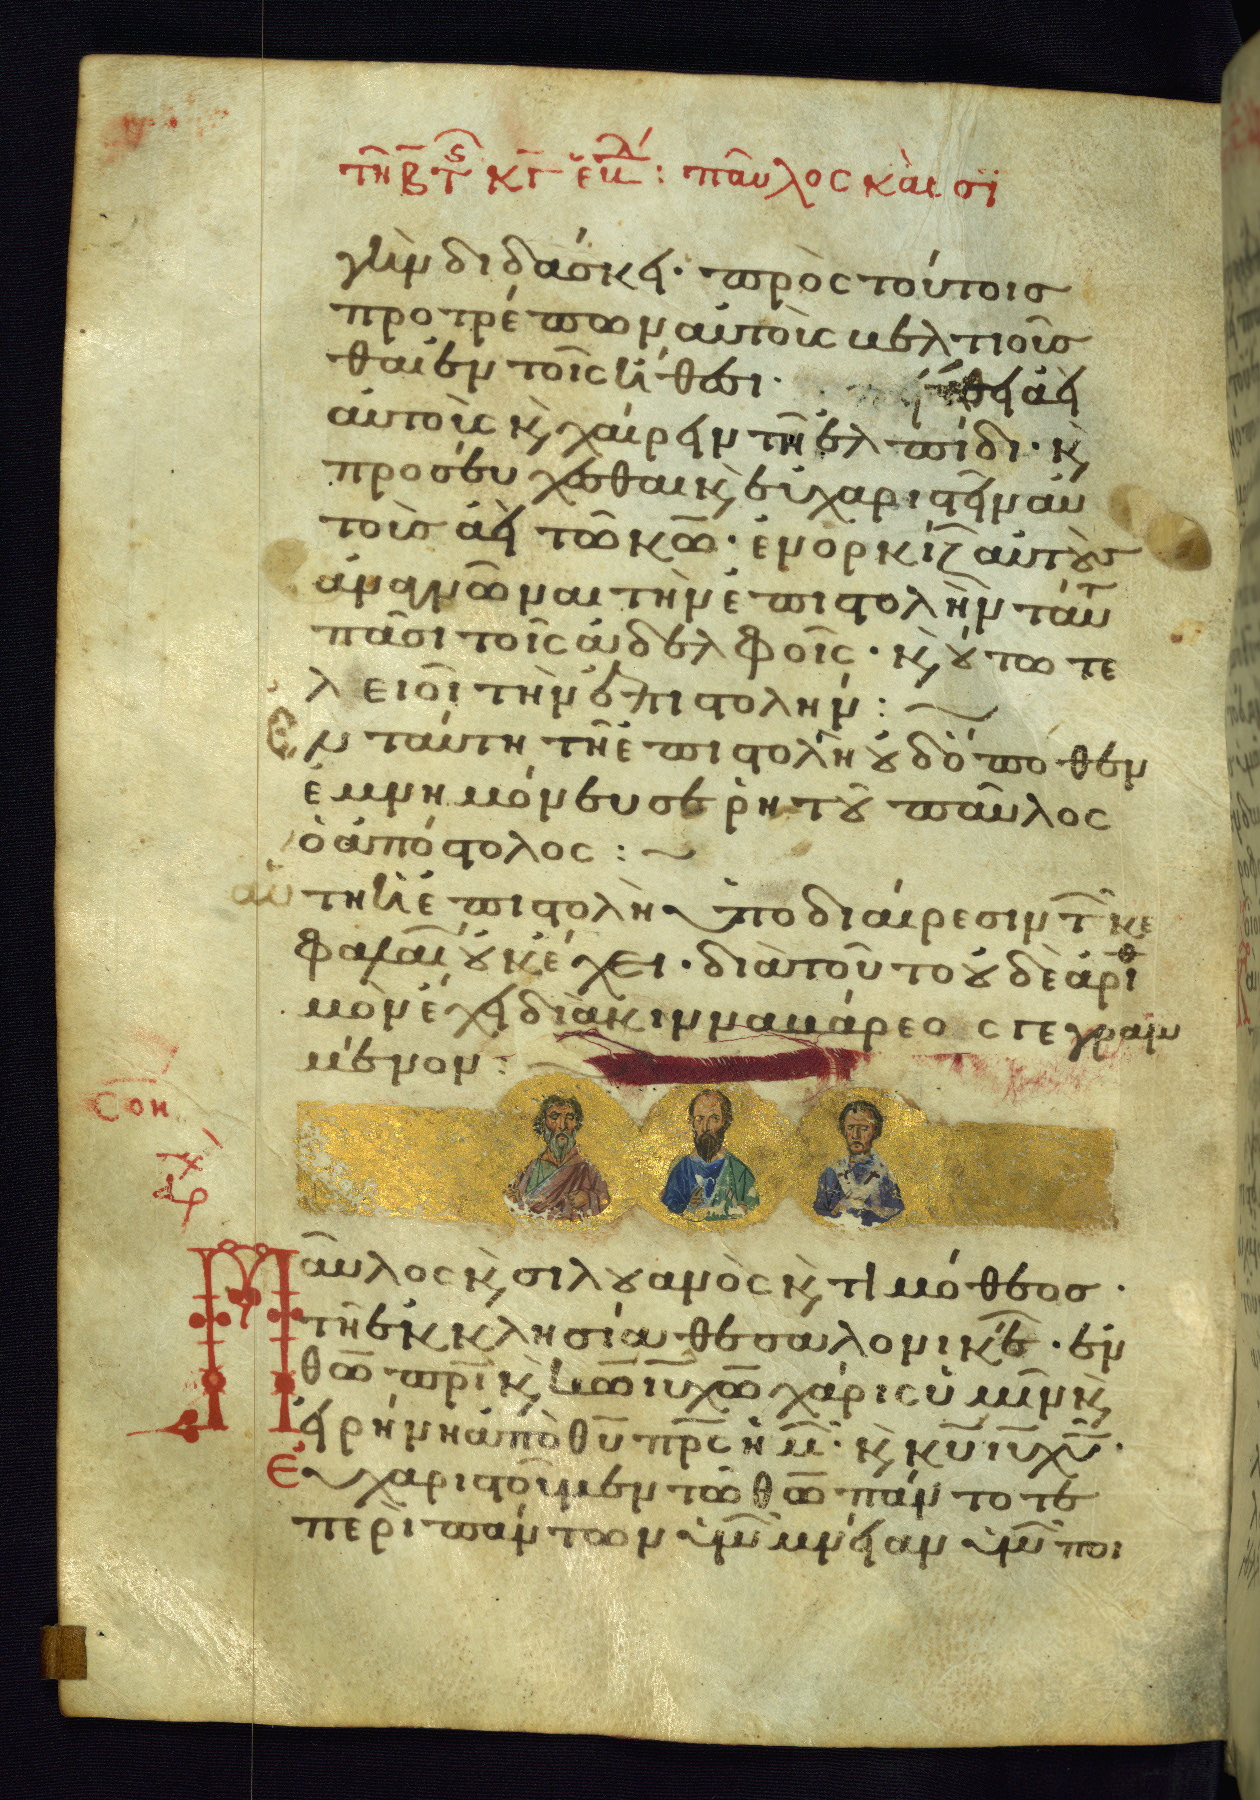 τῆ Β τ ς κγ ἑβδ: παῦλος καὶ σϊ
γὴν διδάσκει· πρὸς τούτοις
προτρέπων αὐτοὺς βελτιοῦσ
θαι ἐν τοῖς ἤθεσι· ἀεὶ
αὐτοὺς κ χαίρειν τῆ ἐλπίδι· κ
προσεύχεσθαι κ εὐχαριστεῖν αὐ
τοὺς ἀεὶ τῶ κῶ· ἐνορκίζ αὐτοὺς
ἀναγνῶναι τὴν ἐπιστολὴν ταύτ
πᾶσι τοῖς ἀδελφοῖς· κ οὕτω τε
λειοῖ τὴν ἐπιστολήν:
Εν ταύτη τῆ ἐπιστολῆ οὐδόποθεν
ἐμνημόνευσε ῥητοῦ παῦλος
ὁ ἀπόστολος:
αὕτη ἡ ἐπιστολὴ ὑποδιαίρεσιν τ κε
φαλαί οὐκ ἔχει· διὰ τοῦτο οὐδὲ ἀριθ
μὸν ἔχει διὰ κινναβάρεος γεγραμ
μένον:
Παῦλος κ σιλουανὸς κ τιμόθεος·
τῆ ἐκκλησία θεσσαλονικέ· ἐν
θῶ πρὶ κ κῶ ιυ χῶ χάρις ὑμῖν κ
εἰρήνη ἀπὸ θυ πρς ἡμ· κ κυ ιυ χυ·
Εὐχαριστοῦμεν τῶ θῶ πάντοτε
περὶ πάντων ὑμ μνείαν ὑμ ποι